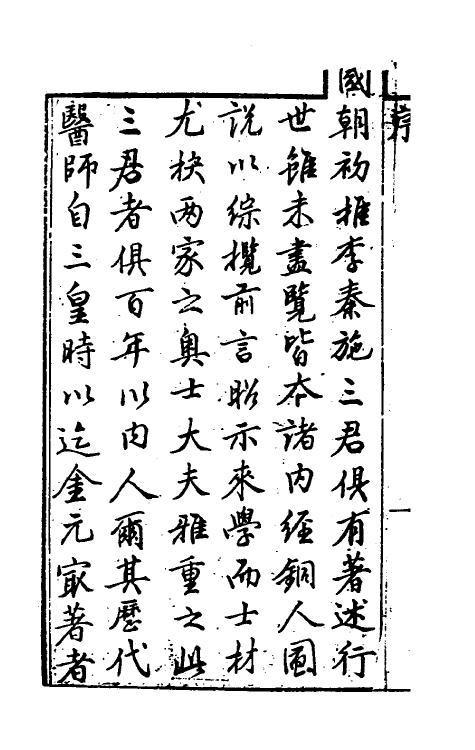 序
國朝初推李秦施三君俱有著述行
世雖未盡覽皆本諸内經銅人圖
説以綜攬前言昭示來學而士材
尤抉两家之奥士大夫雅重之此
三君者俱百年以内人爾其歷代
醫師自三皇時以迄金元㝡著者
一